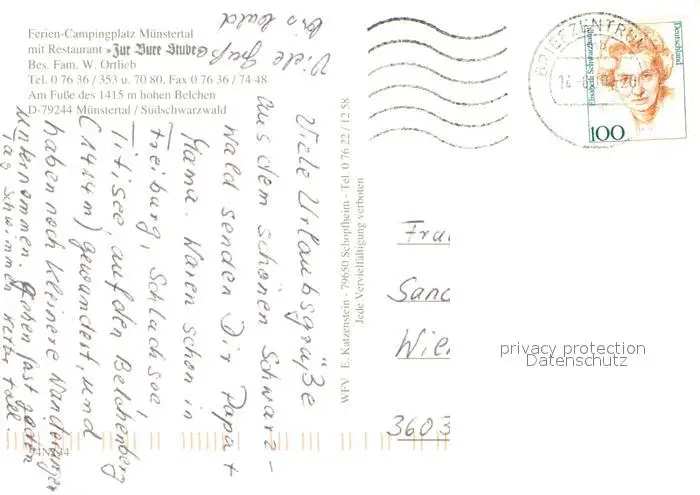 Ferien-Campingplatz Münstertal
mit Restaurant »Zur Bure Stube«
Bes. Fam. W. Ortlieb
Tel. 0 76 36 / 353 u. 70 80, Fax 0 76 36 / 74 48
Am Fuße des 1415 m hohen Belchen
D-79244 Münstertal / Südschwarzwald
Viele Urlaubsgrüße
aus dem schönen Schwarz-
wald senden Dir Papa +
Mama. Waren schon in
Freiburg, Schluchsee,
Titisee, auf den Belchenberg
(1414 m) gewandert, und
haben noch kleinere Wanderungen
unternommen. Gehen fast jeden
Tag schwimmen. Wetter toll.
Viele Grüße
bis bald
WFV E. Katzenstein - 79650 Schopfheim - Tel. 0 76 22 / 12 58
Jede Vervielfältigung verboten
BRIEFZENTRUM
14
Elisabeth Schwarzhaupt
Deutschland
100
Frau
Sand
Wie
3603
privacy protection
Datenschutz